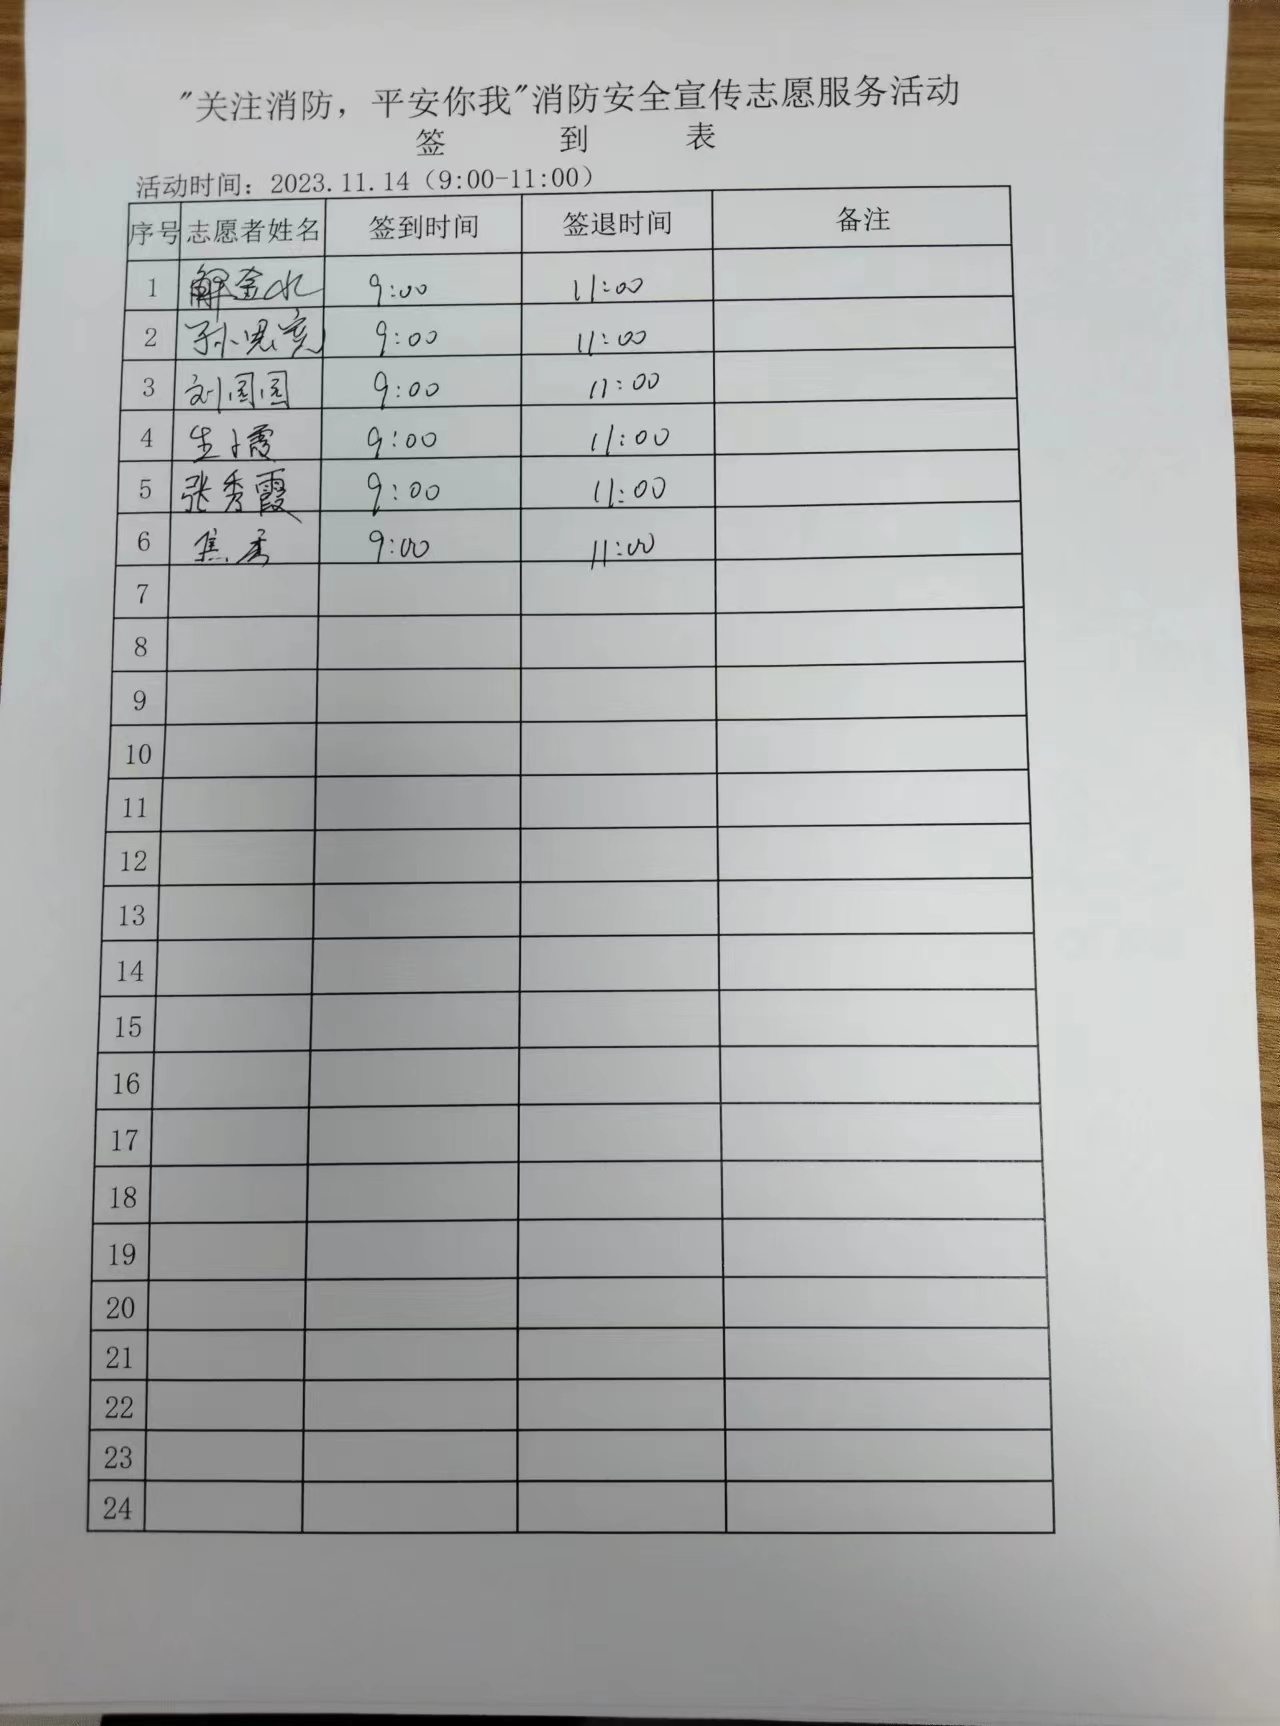 "关注消防，平安你我"消防安全宣传志愿服务活动
签 到 表
活动时间：2023.11.14（9:00-11:00）
序号 志愿者姓名 签到时间 签退时间 备注
1 解金水 9:00 11:00
2 孙思亮 9:00 11:00
3 刘国国 9:00 11:00
4 生小霞 9:00 11:00
5 张秀霞 9:00 11:00
6 焦秀 9:00 11:00
7
8
9
10
11
12
13
14
15
16
17
18
19
20
21
22
23
24